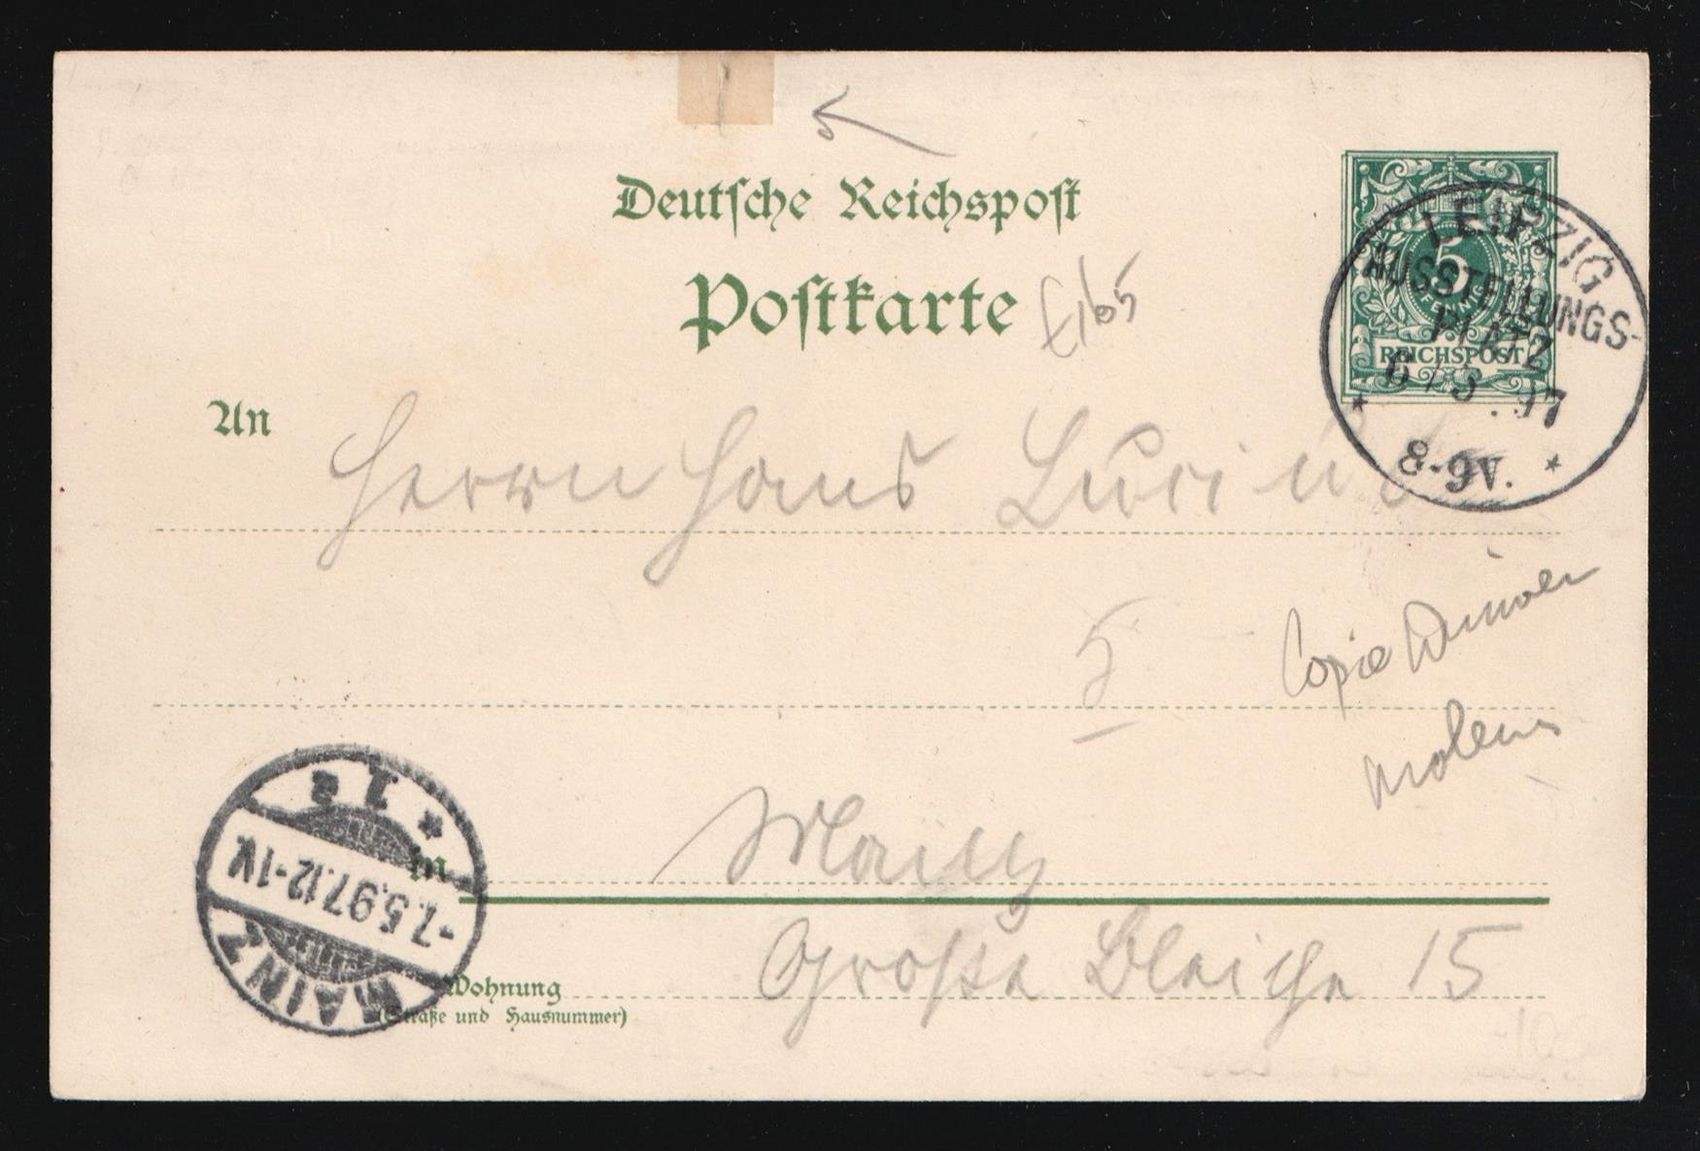 Deutsche Reichspost
Postkarte
£165
5
PFENNIG
REICHSPOST
LEIPZIG
AUSSTELLUNGS-
PLATZ
6 / 5 . 97
8-9V.
An
Herrn Hans
5
Copie
molens
Mainz
in
Große Bleiche 15
Wohnung
(Straße und Hausnummer)
MAINZ
-7.5.97.12-1V.
* 1 a